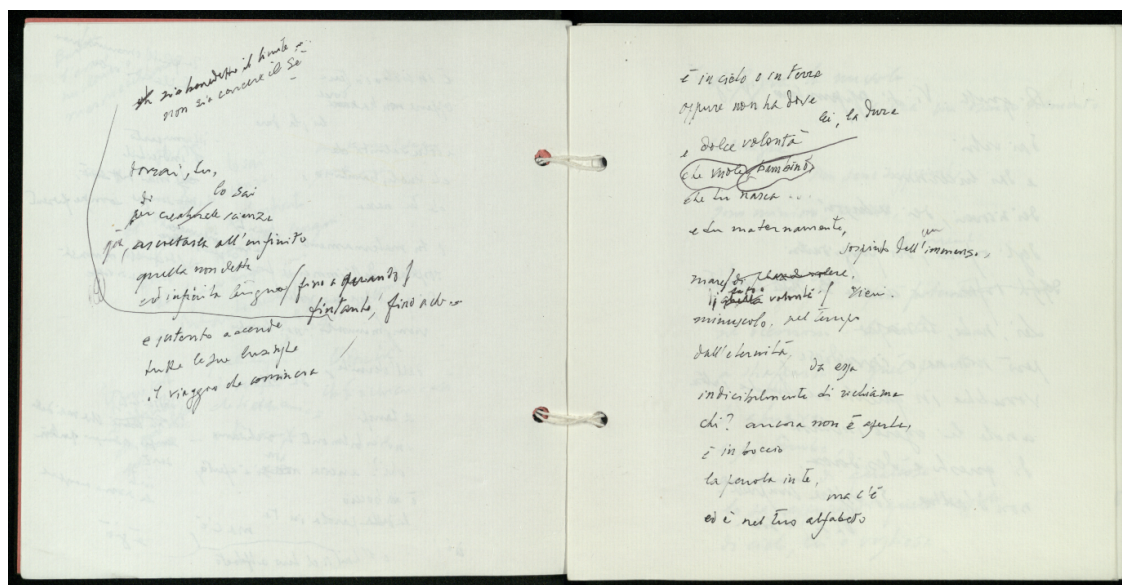 sia benedetto il limite e
non sia carcere il Se
tornai, lu,
lo sai
di
creaturale scienza
già, ascoltasti all'infinito
quella non detta
ed infinita lingua / fino a quando /
fintanto, fino a che
e intanto accende
tutte le sue lusinghe
il viaggio che comincia
è in cielo o in terra
oppure non ha dove
lei, la dura
e dolce volontà
che vuole, bambino,
che tu nasca ...
e tu maternamente,
sospinto dall'immenso,
mare/ di
volontà / vieni.
minuscolo, nel tempo
dall'eternità,
da essa
indicibilmente di richiama
chi? ancora non è aperta,
è in boccio
la parola in te,
ma c'è
ed è nel tuo alfabeto